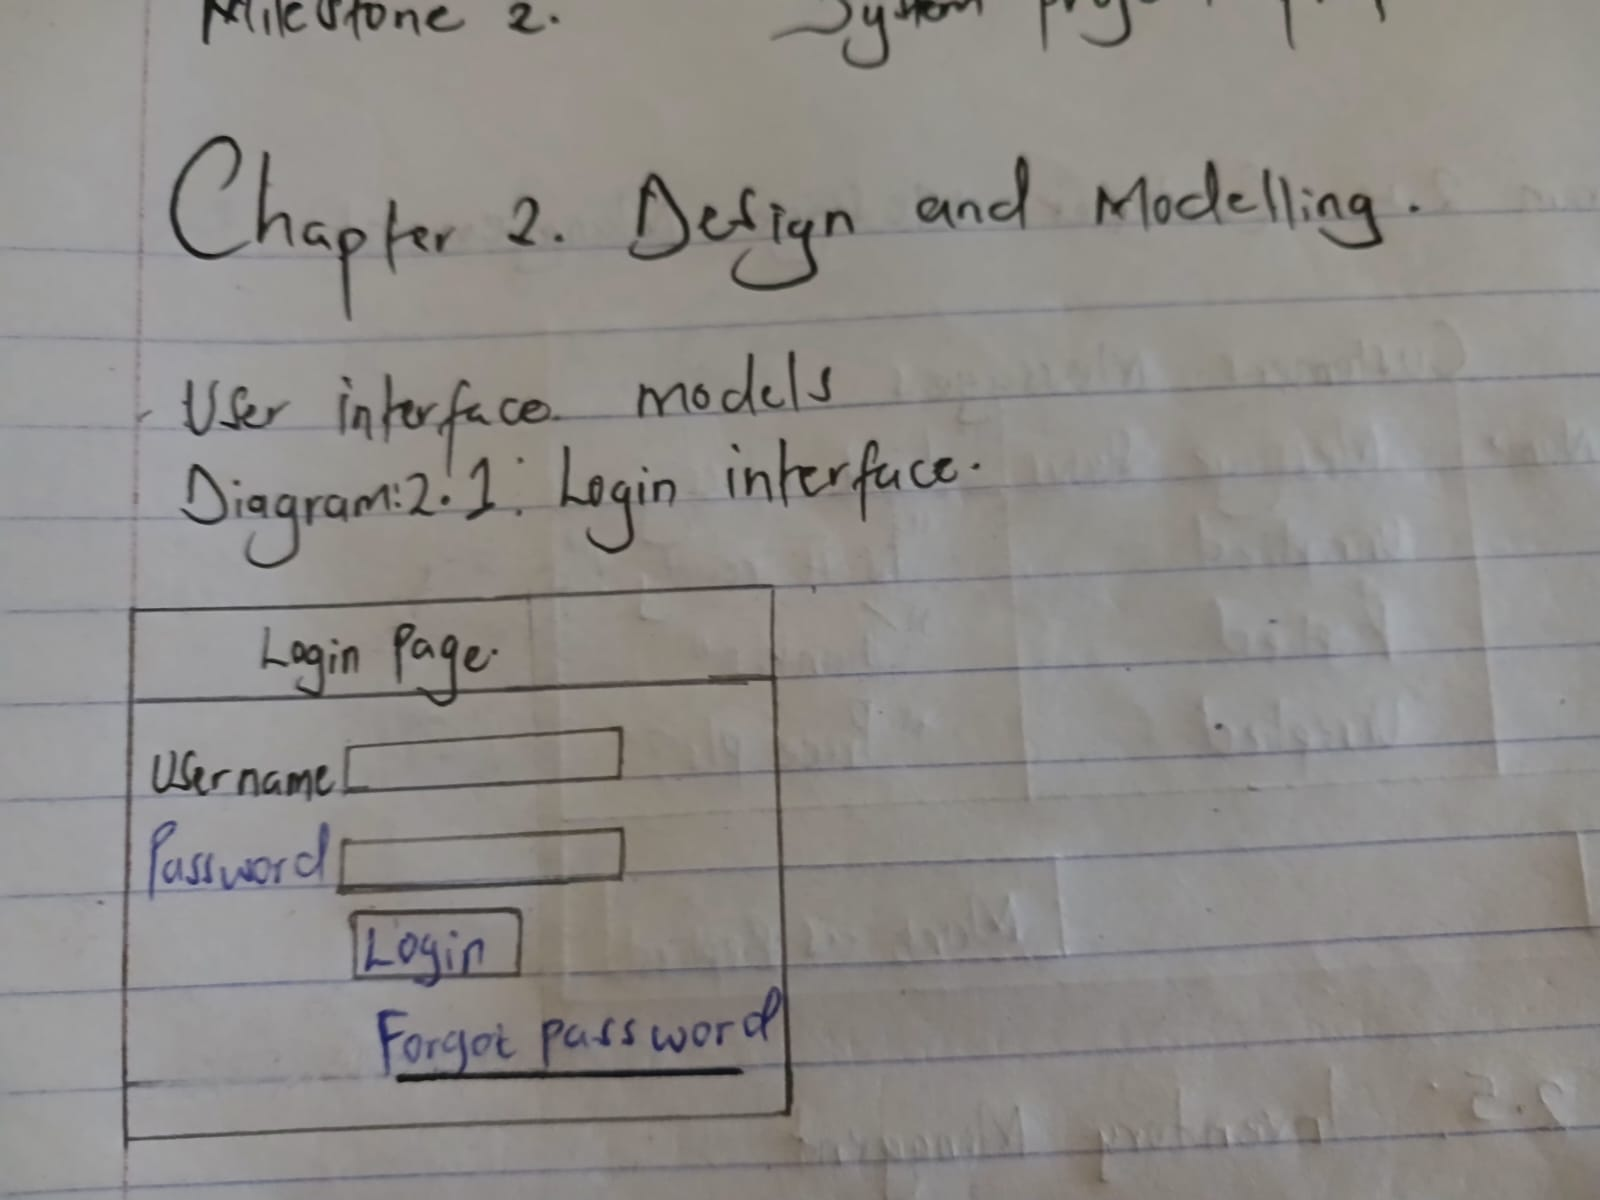 Milestone 2. System
Chapter 2. Design and Modelling.
User interface models
Diagram:2.1: Login interface.
Login Page.
Username
Password
Login
Forgot password